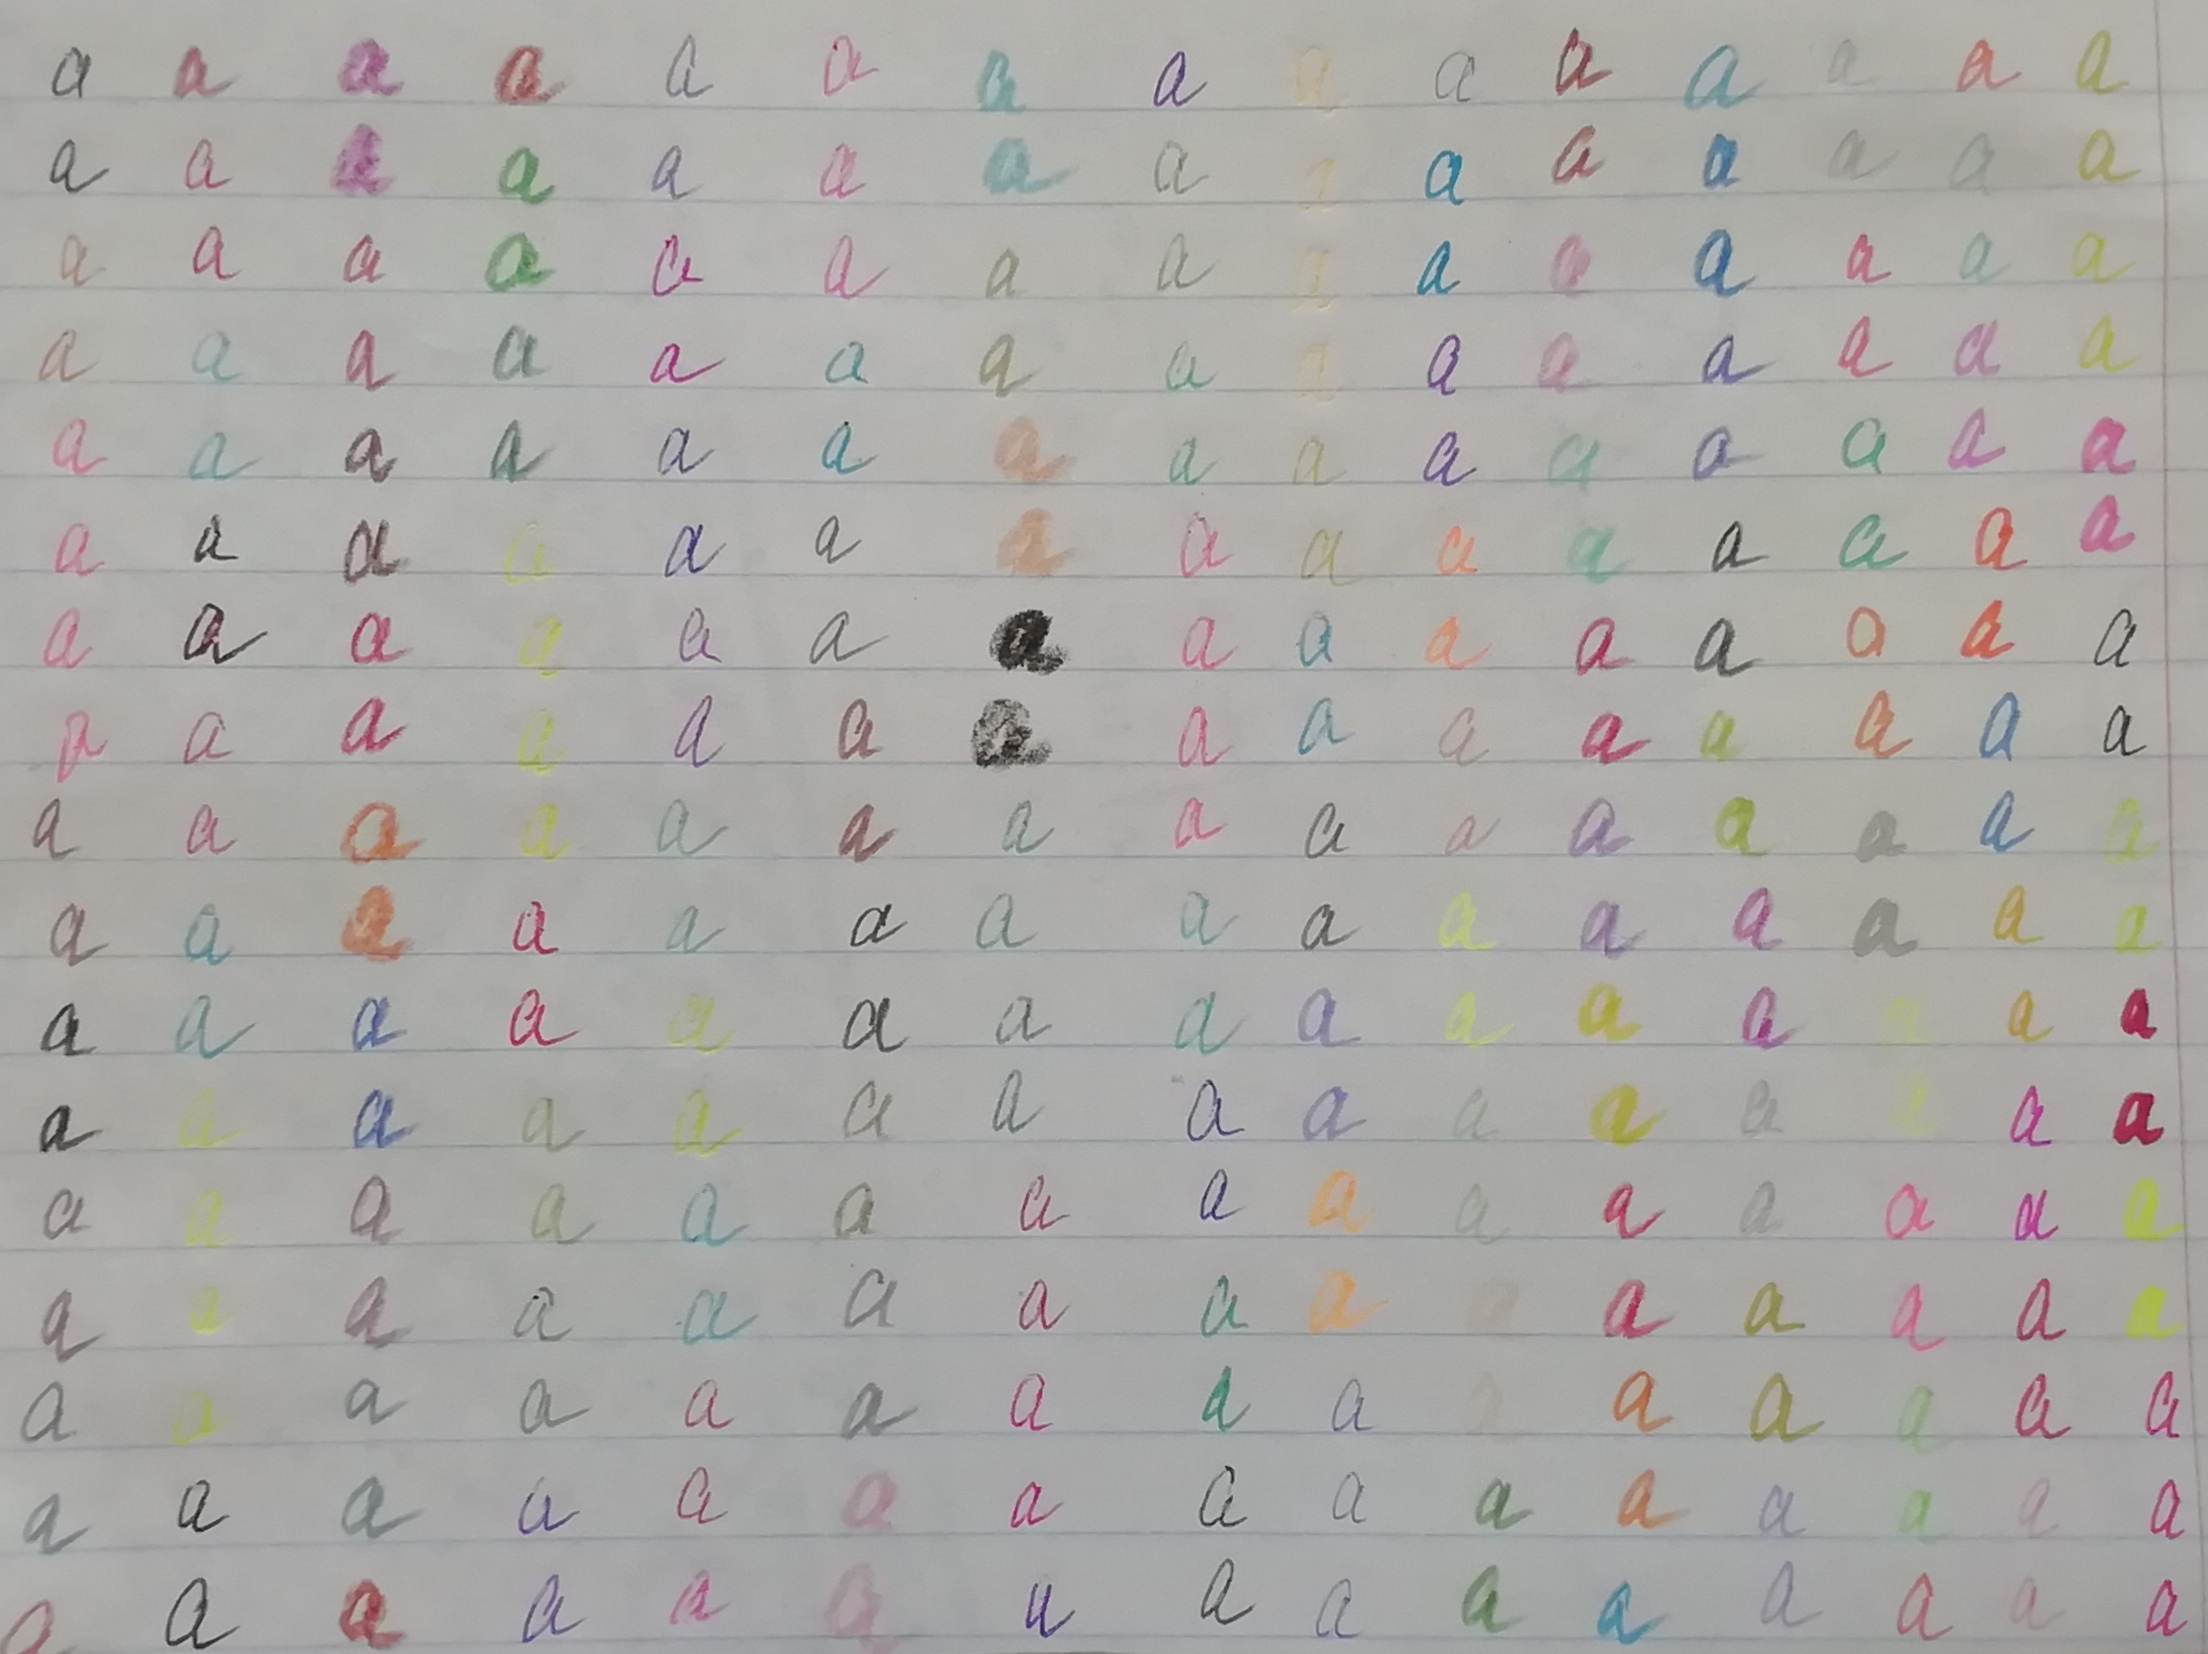 a a a a a a a a a a a a a a a
a a a a a a a a a a a a a a a
a a a a a a a a a a a a a a a
a a a a a a a a a a a a a a a
a a a a a a a a a a a a a a a
a a a a a a a a a a a a a a a
a a a a a a a a a a a a a a a
a a a a a a a a a a a a a a a
a a a a a a a a a a a a a a a
a a a a a a a a a a a a a a a
a a a a a a a a a a a a a a a
a a a a a a a a a a a a a a a
a a a a a a a a a a a a a a a
a a a a a a a a a a a a a a a
a a a a a a a a a a a a a a
a a a a a a a a a a a a a a a
a a a a a a a a a a a a a a a